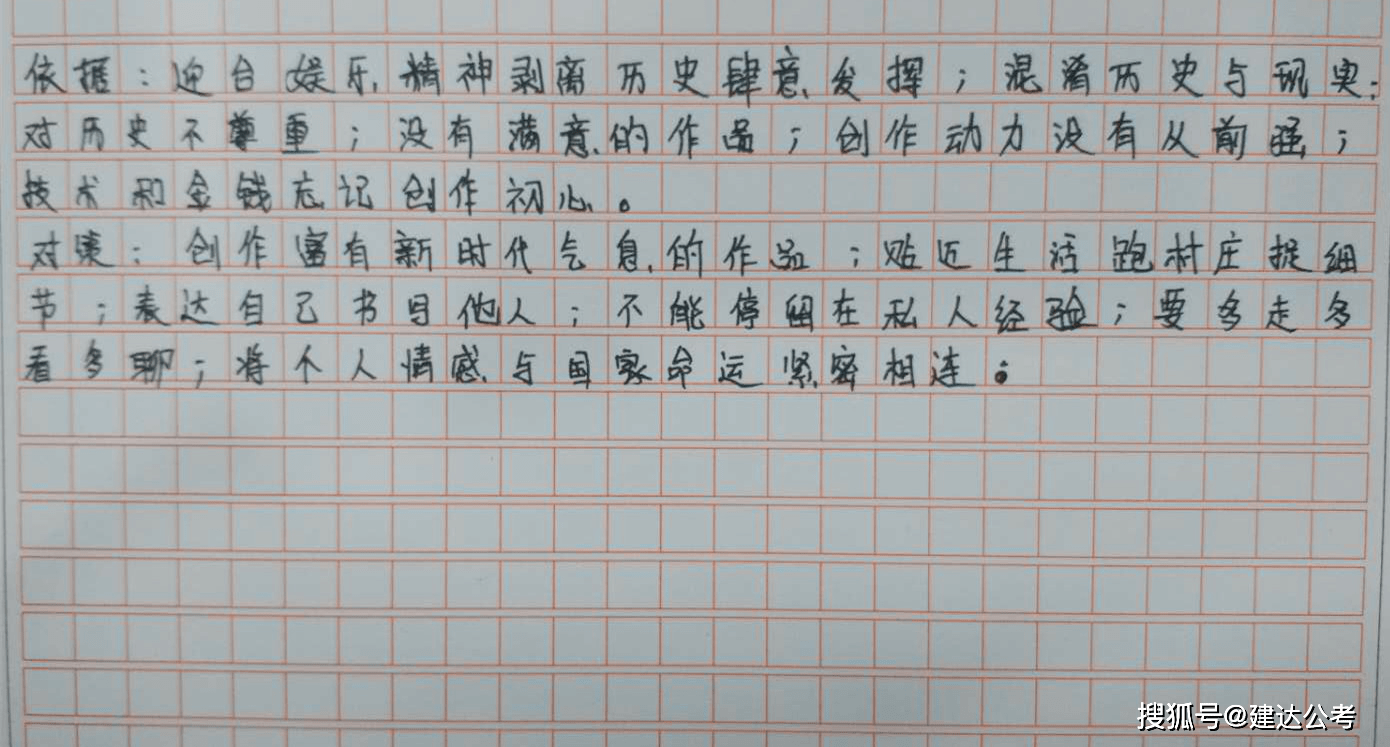 依据：迎合娱乐精神剥离历史肆意发挥；混淆历史与现实；
对历史不尊重；没有满意的作品；创作动力没有从前强；
技术和金钱忘记创作初心。
对策：创作富有新时代气息的作品；贴近生活跑村庄捉细
节；表达自己书写他人；不能停留在私人经验；要多走多
看多聊；将个人情感与国家命运紧密相连。
搜狐号@建达公考